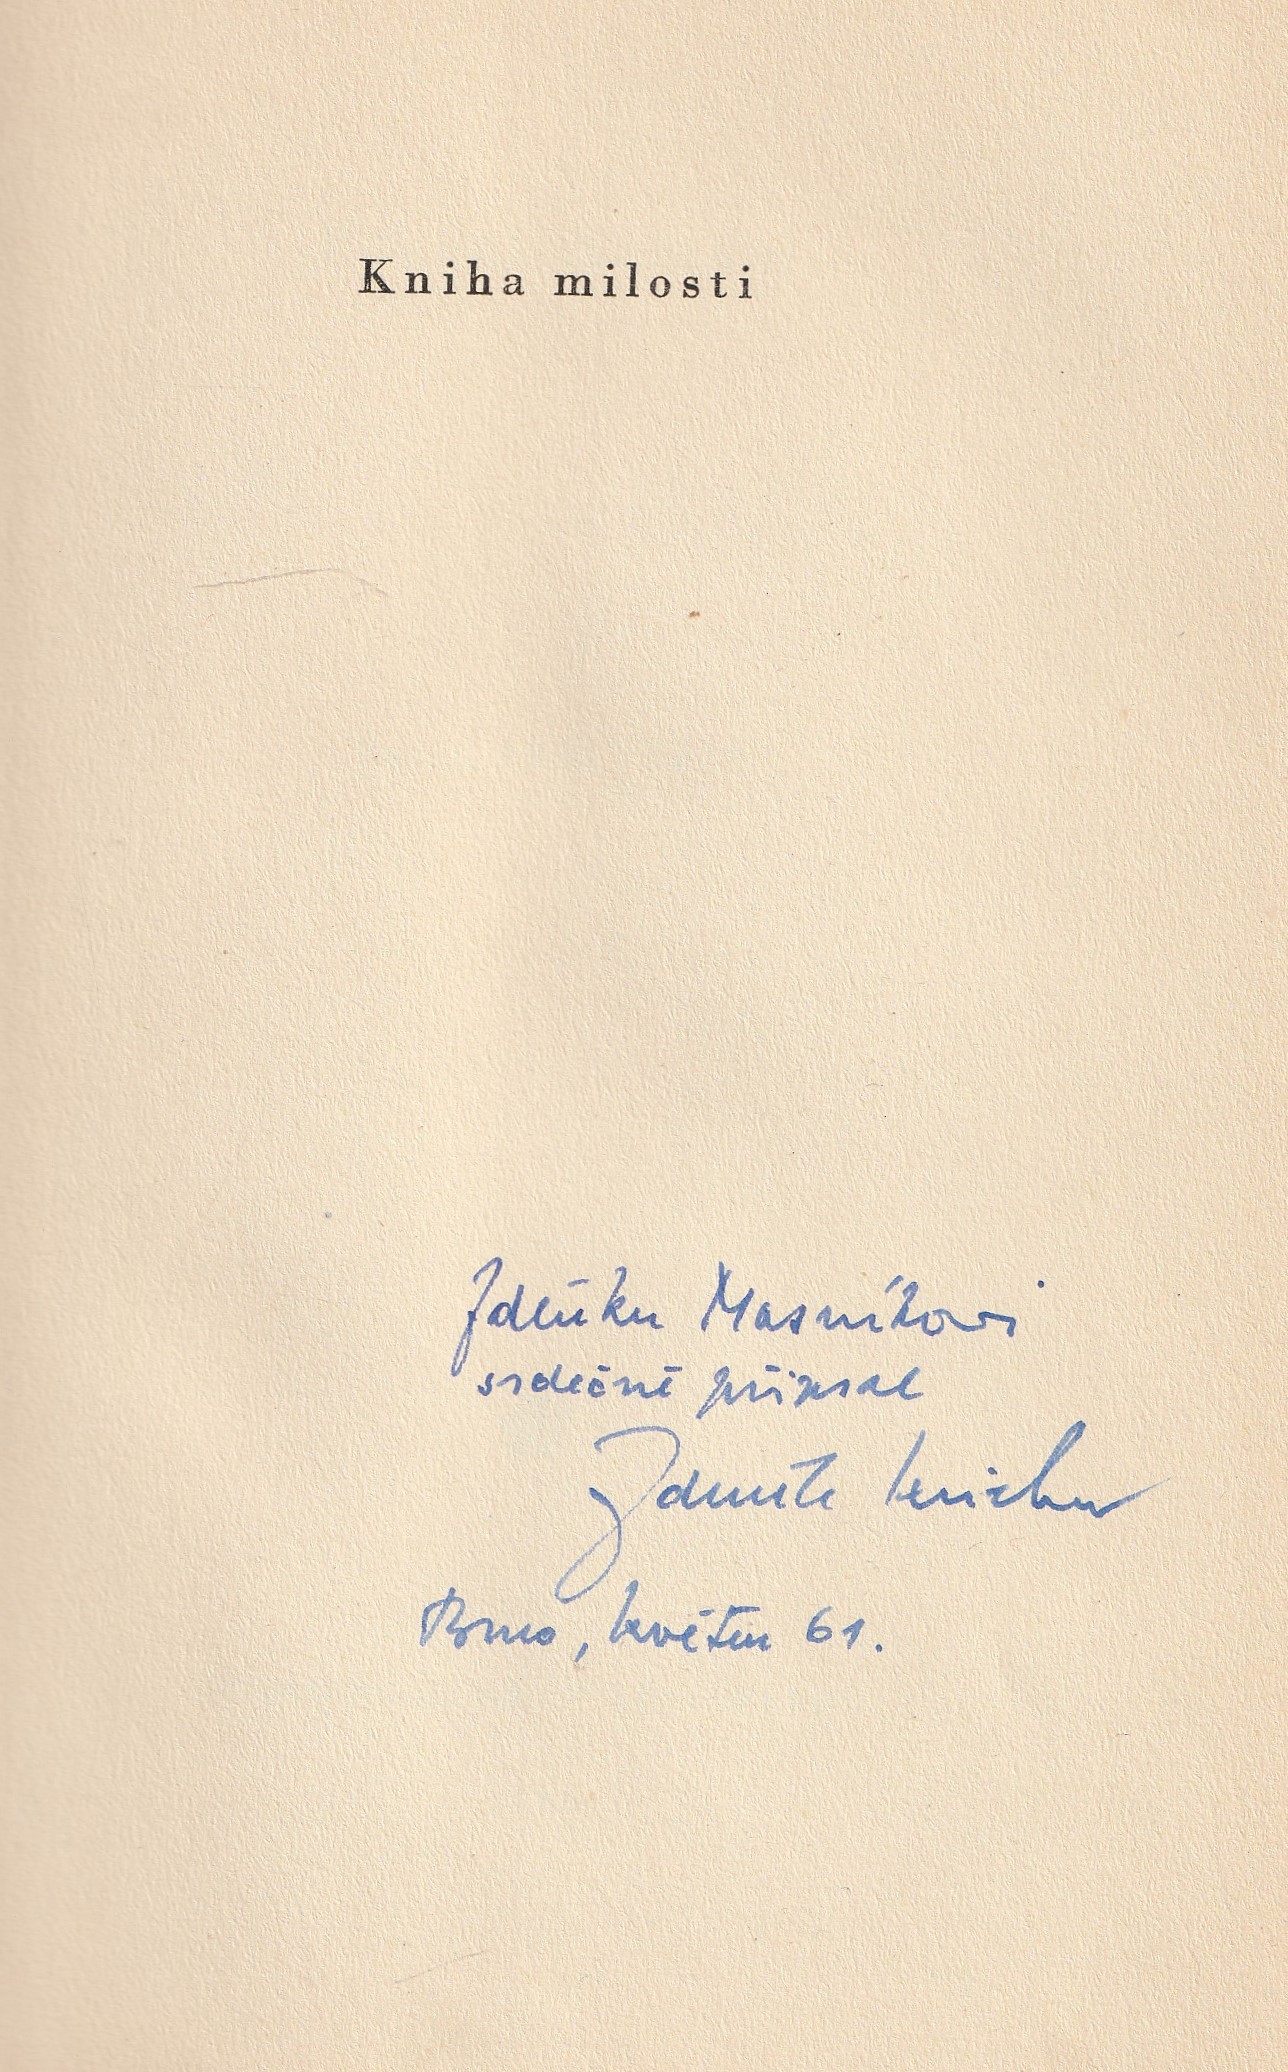 Kniha milosti
Zdeňku Masníkovi
srdečně připsal
Zdeněk Kriebel
Brno, květen 61.